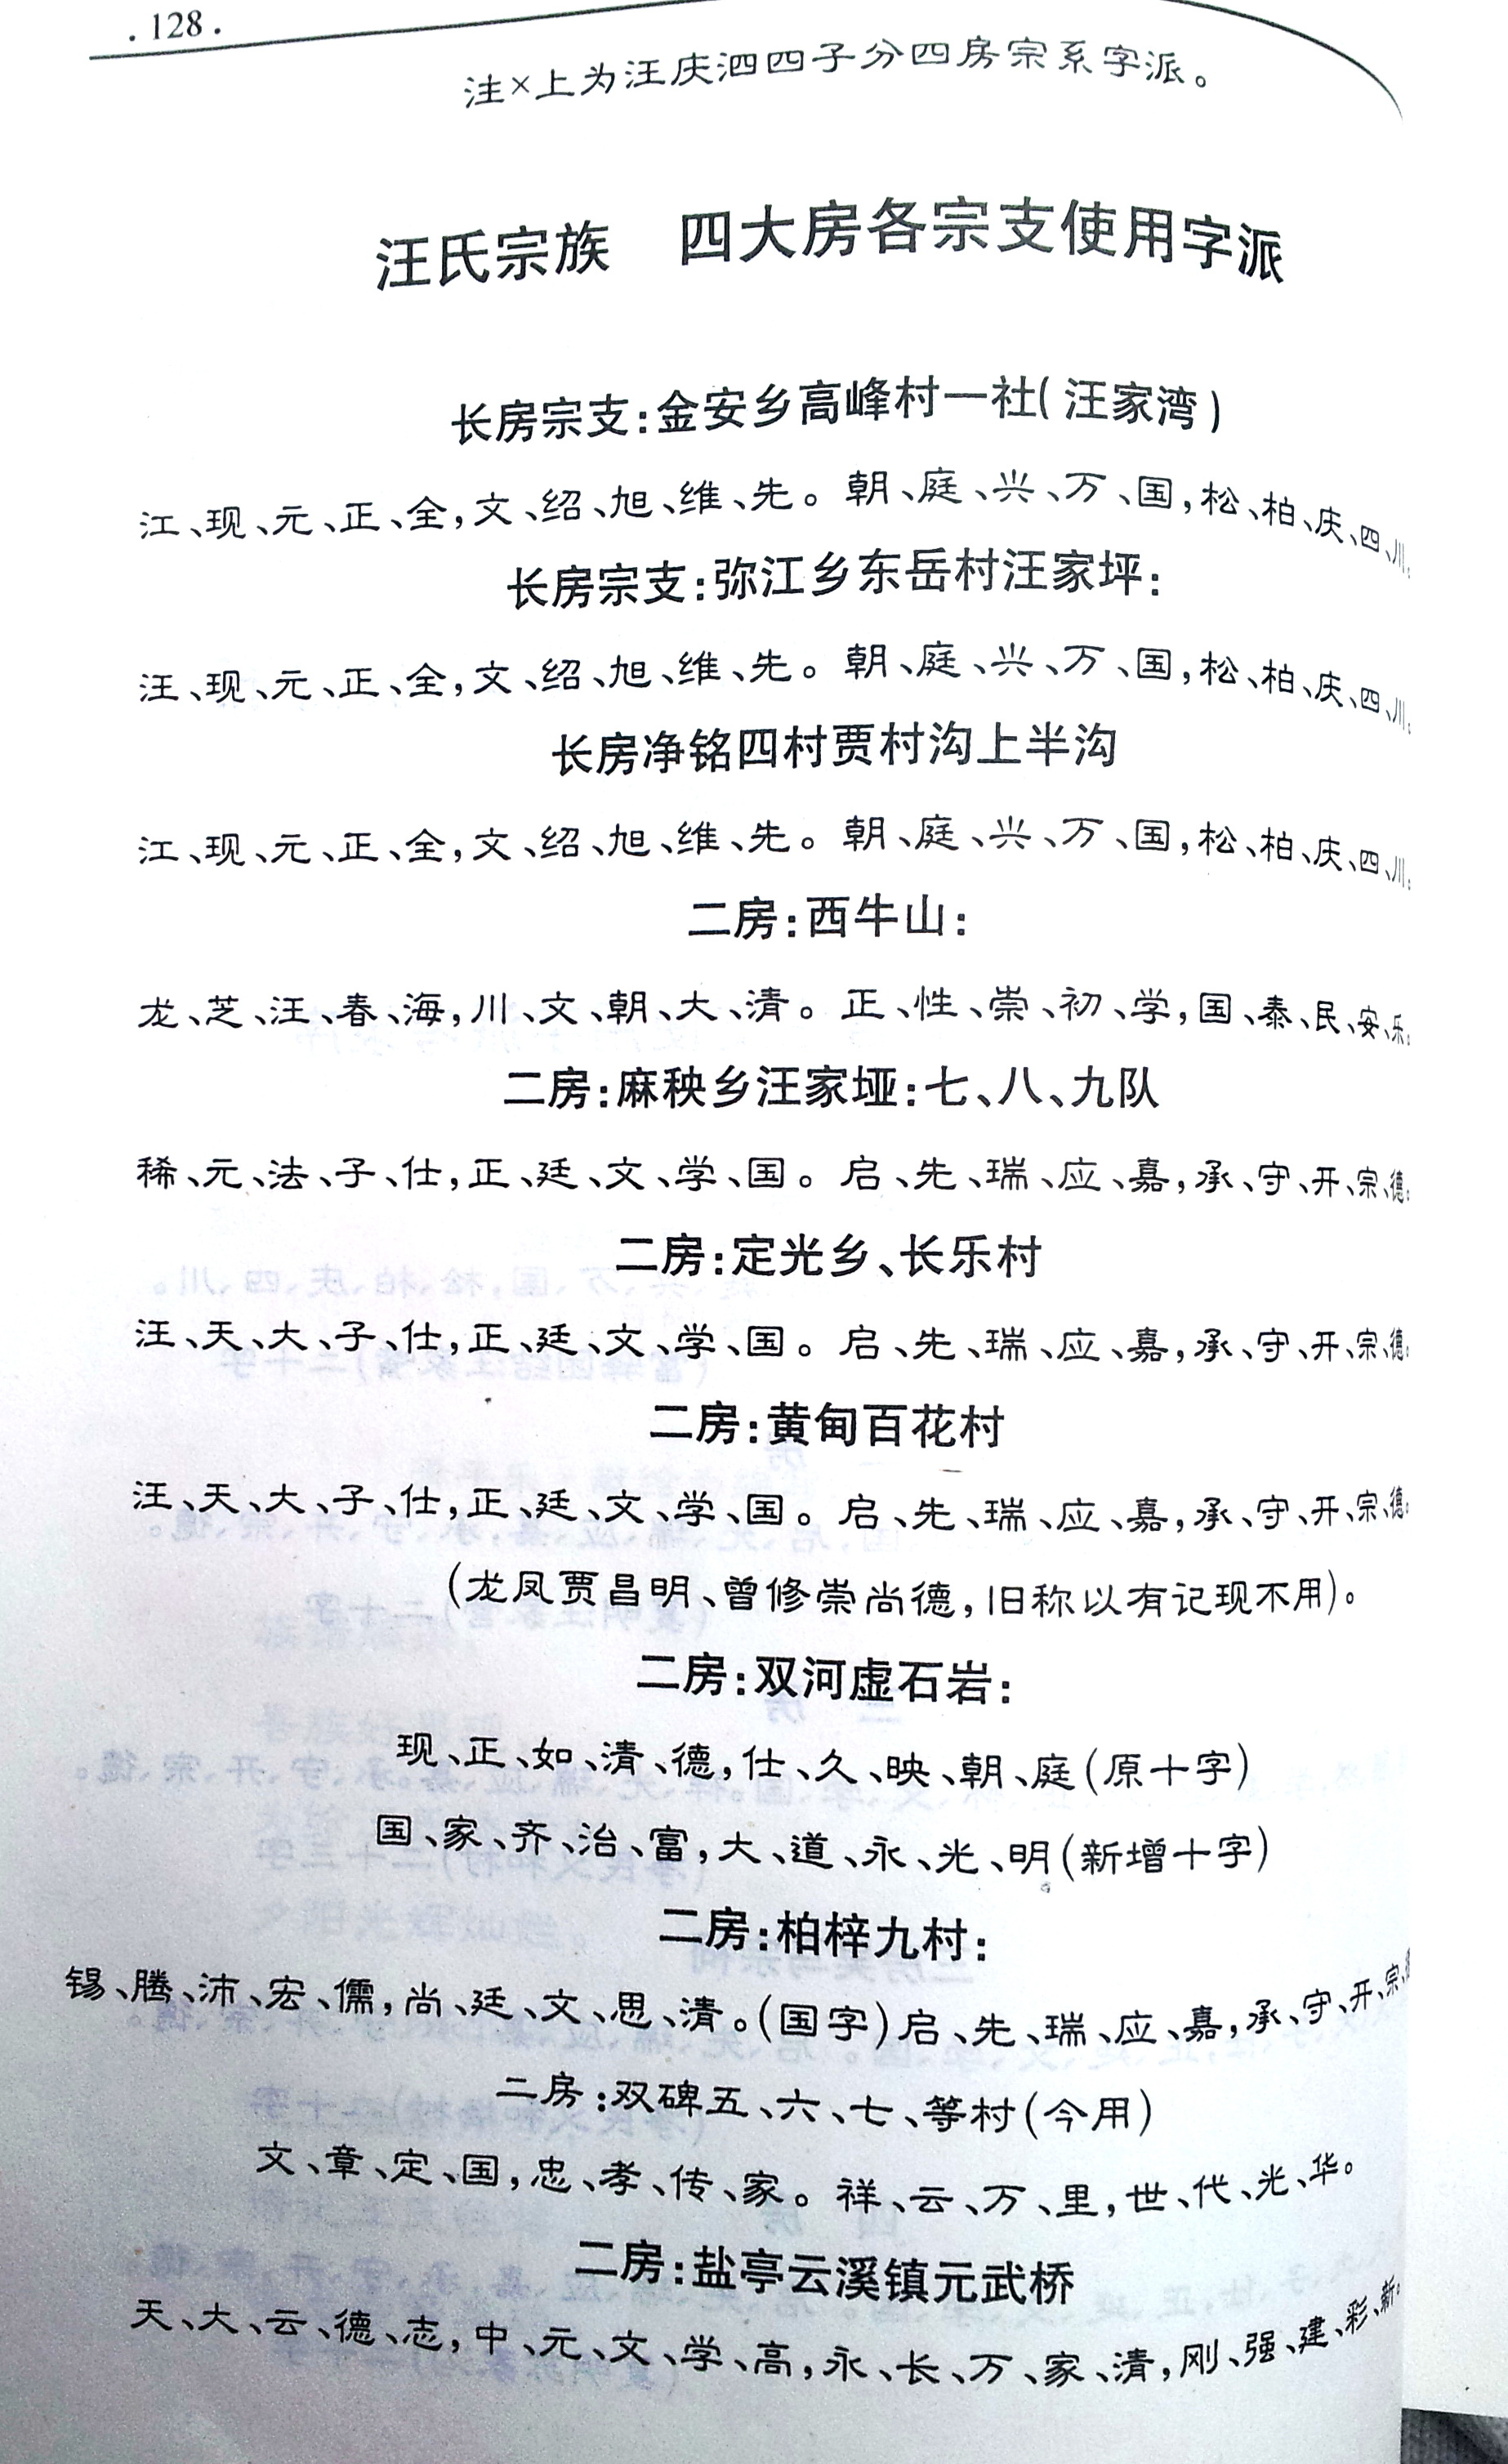 . 128 .
注×上为汪庆泗四子分四房宗系字派。
汪氏宗族 四大房各宗支使用字派
长房宗支:金安乡高峰村一社(汪家湾)
江、现、元、正、全,文、绍、旭、维、先。朝、庭、兴、万、国,松、柏、庆、四、川。
长房宗支:弥江乡东岳村汪家坪:
汪、现、元、正、全,文、绍、旭、维、先。朝、庭、兴、万、国,松、柏、庆、四、川。
长房净铭四村贾村沟上半沟
江、现、元、正、全,文、绍、旭、维、先。朝、庭、兴、万、国,松、柏、庆、四、川。
二房:西牛山:
龙、芝、汪、春、海,川、文、朝、大、清。正、性、崇、初、学,国、泰、民、安、乐。
二房:麻秧乡汪家垭:七、八、九队
稀、元、法、子、仕,正、廷、文、学、国。启、先、瑞、应、嘉,承、守、开、宗、德。
二房:定光乡、长乐村
汪、天、大、子、仕,正、廷、文、学、国。启、先、瑞、应、嘉,承、守、开、宗、德。
二房:黄甸百花村
汪、天、大、子、仕,正、廷、文、学、国。启、先、瑞、应、嘉,承、守、开、宗、德。
(龙凤贾昌明、曾修崇尚德,旧称以有记现不用)。
二房:双河虚石岩:
现、正、如、清、德,仕、久、映、朝、庭(原十字)
国、家、齐、治、富,大、道、永、光、明(新增十字)
二房:柏梓九村:
锡、腾、沛、宏、儒,尚、廷、文、思、清。(国字)启、先、瑞、应、嘉,承、守、开、宗、德
二房:双碑五、六、七、等村(今用)
文、章、定、国,忠、孝、传、家。祥、云、万、里,世、代、光、华。
二房:盐亭云溪镇元武桥
天、大、云、德、志,中、元、文、学、高,永、长、万、家、清,刚、强、建、彩、新。